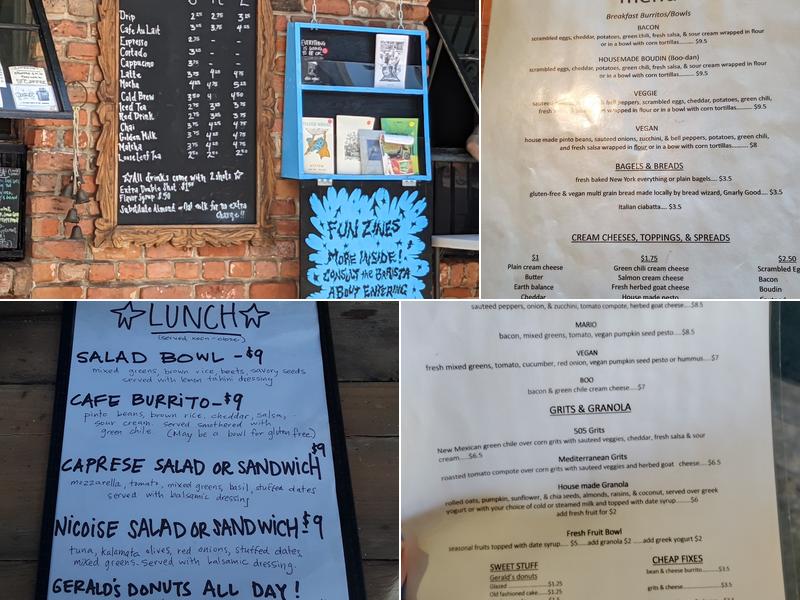 Drip 2²⁵ 2⁷⁵ 3²⁵
Cafe Au Lait 3²⁵ 3⁷⁵ 4²⁵
Espresso 2⁷⁵
Cortado
Cappucino
Latte
Mocha
Cold Brew
Iced Tea
Red Drink
Chai
Golden Milk
Matcha
Loose Leaf Tea
☆All drinks come with 2 shots☆
Extra Double Shot
Flavor Syrup
Substitute Almond or Oat milk for no extra
charge!!
EVERYTHING
IS GOING
TO BE OK
FUN ZINES
MORE INSIDE!
CONSULT the BARISTA
ABOUT ENTERING
menu
Breakfast Burritos/Bowls
BACON
scrambled eggs, cheddar, potatoes, green chili, fresh salsa, & sour cream wrapped in flour
or in a bowl with corn tortillas........ $9.5
HOUSEMADE BOUDIN (Boo-dan)
scrambled eggs, cheddar, potatoes, green chili, fresh salsa, & sour cream wrapped in flour
or in a bowl with corn tortillas........ $9.5
VEGGIE
bell peppers, scrambled eggs, cheddar, potatoes, green chili,
fresh wrapped in flour or in a bowl with corn tortillas..........$9.5
VEGAN
house made pinto beans, sauteed onions, zucchini, & bell peppers, potatoes, green chili,
and fresh salsa wrapped in flour or in a bowl with corn tortillas......... $8
BAGELS & BREADS
fresh baked New York everything or plain bagels.... $3.5
gluten-free & vegan multi grain bread made locally by bread wizard, Gnarly Good.... $3.5
italian ciabatta.... $3.5
CREAM CHEESES, TOPPINGS, & SPREADS
$1 $1.75 $2.50
Plain cream cheese Green chili cream cheese Scrambled Eg
Butter Salmon cream cheese Bacon
Earth balance Fresh herbed goat cheese Boudin
Cheddar House made pesto
☆LUNCH☆
(served noon-close)
SALAD BOWL - $9
mixed greens, brown rice, beets, savory seeds
served with lemon tahini dressing
CAFE BURRITO - $9
pinto beans, brown rice, cheddar, salsa,
sour cream. served smothered with
green chile (May be a bowl for gluten free)
CAPRESE SALAD OR SANDWICH $9
mozzarella, tomato, mixed greens, basil, stuffed dates
served with balsamic dressing
NICOISE SALAD OR SANDWICH - $9
tuna, kalamata olives, red onions, stuffed dates,
mixed greens. served with balsamic dressing.
GERALD'S DONUTS ALL DAY!
sauteed peppers, onion, & zucchini, tomato compote, herbed goat cheese....$8.5
MARIO
bacon, mixed greens, tomato, vegan pumpkin seed pesto....$8.5
VEGAN
fresh mixed greens, tomato, cucumber, red onion, vegan pumpkin seed pesto or hummus....$7
BOO
bacon & green chile cream cheese....$7
GRITS & GRANOLA
505 Grits
New Mexican green chile over corn grits with sauteed veggies, cheddar, fresh salsa & sour
cream.....$6.5
Mediterranean Grits
roasted tomato compote over corn grits with sauteed veggies and herbed goat cheese....$6.5
House made Granola
rolled oats, pumpkin, sunflower, & chia seeds, almonds, raisins, & coconut, served over greek
yogurt or with your choice of cold or steamed milk and topped with date syrup........$6
add fresh fruit for $2
Fresh Fruit Bowl
seasonal fruits topped with date syrup..... $5.....add granola $2 .....add greek yogurt $2
SWEET STUFF CHEAP FIXES
Gerald's donuts bean & cheese burrito........$3.5
Glazed $1.25
Old fashioned cake......$1.25 grits & cheese $3.5